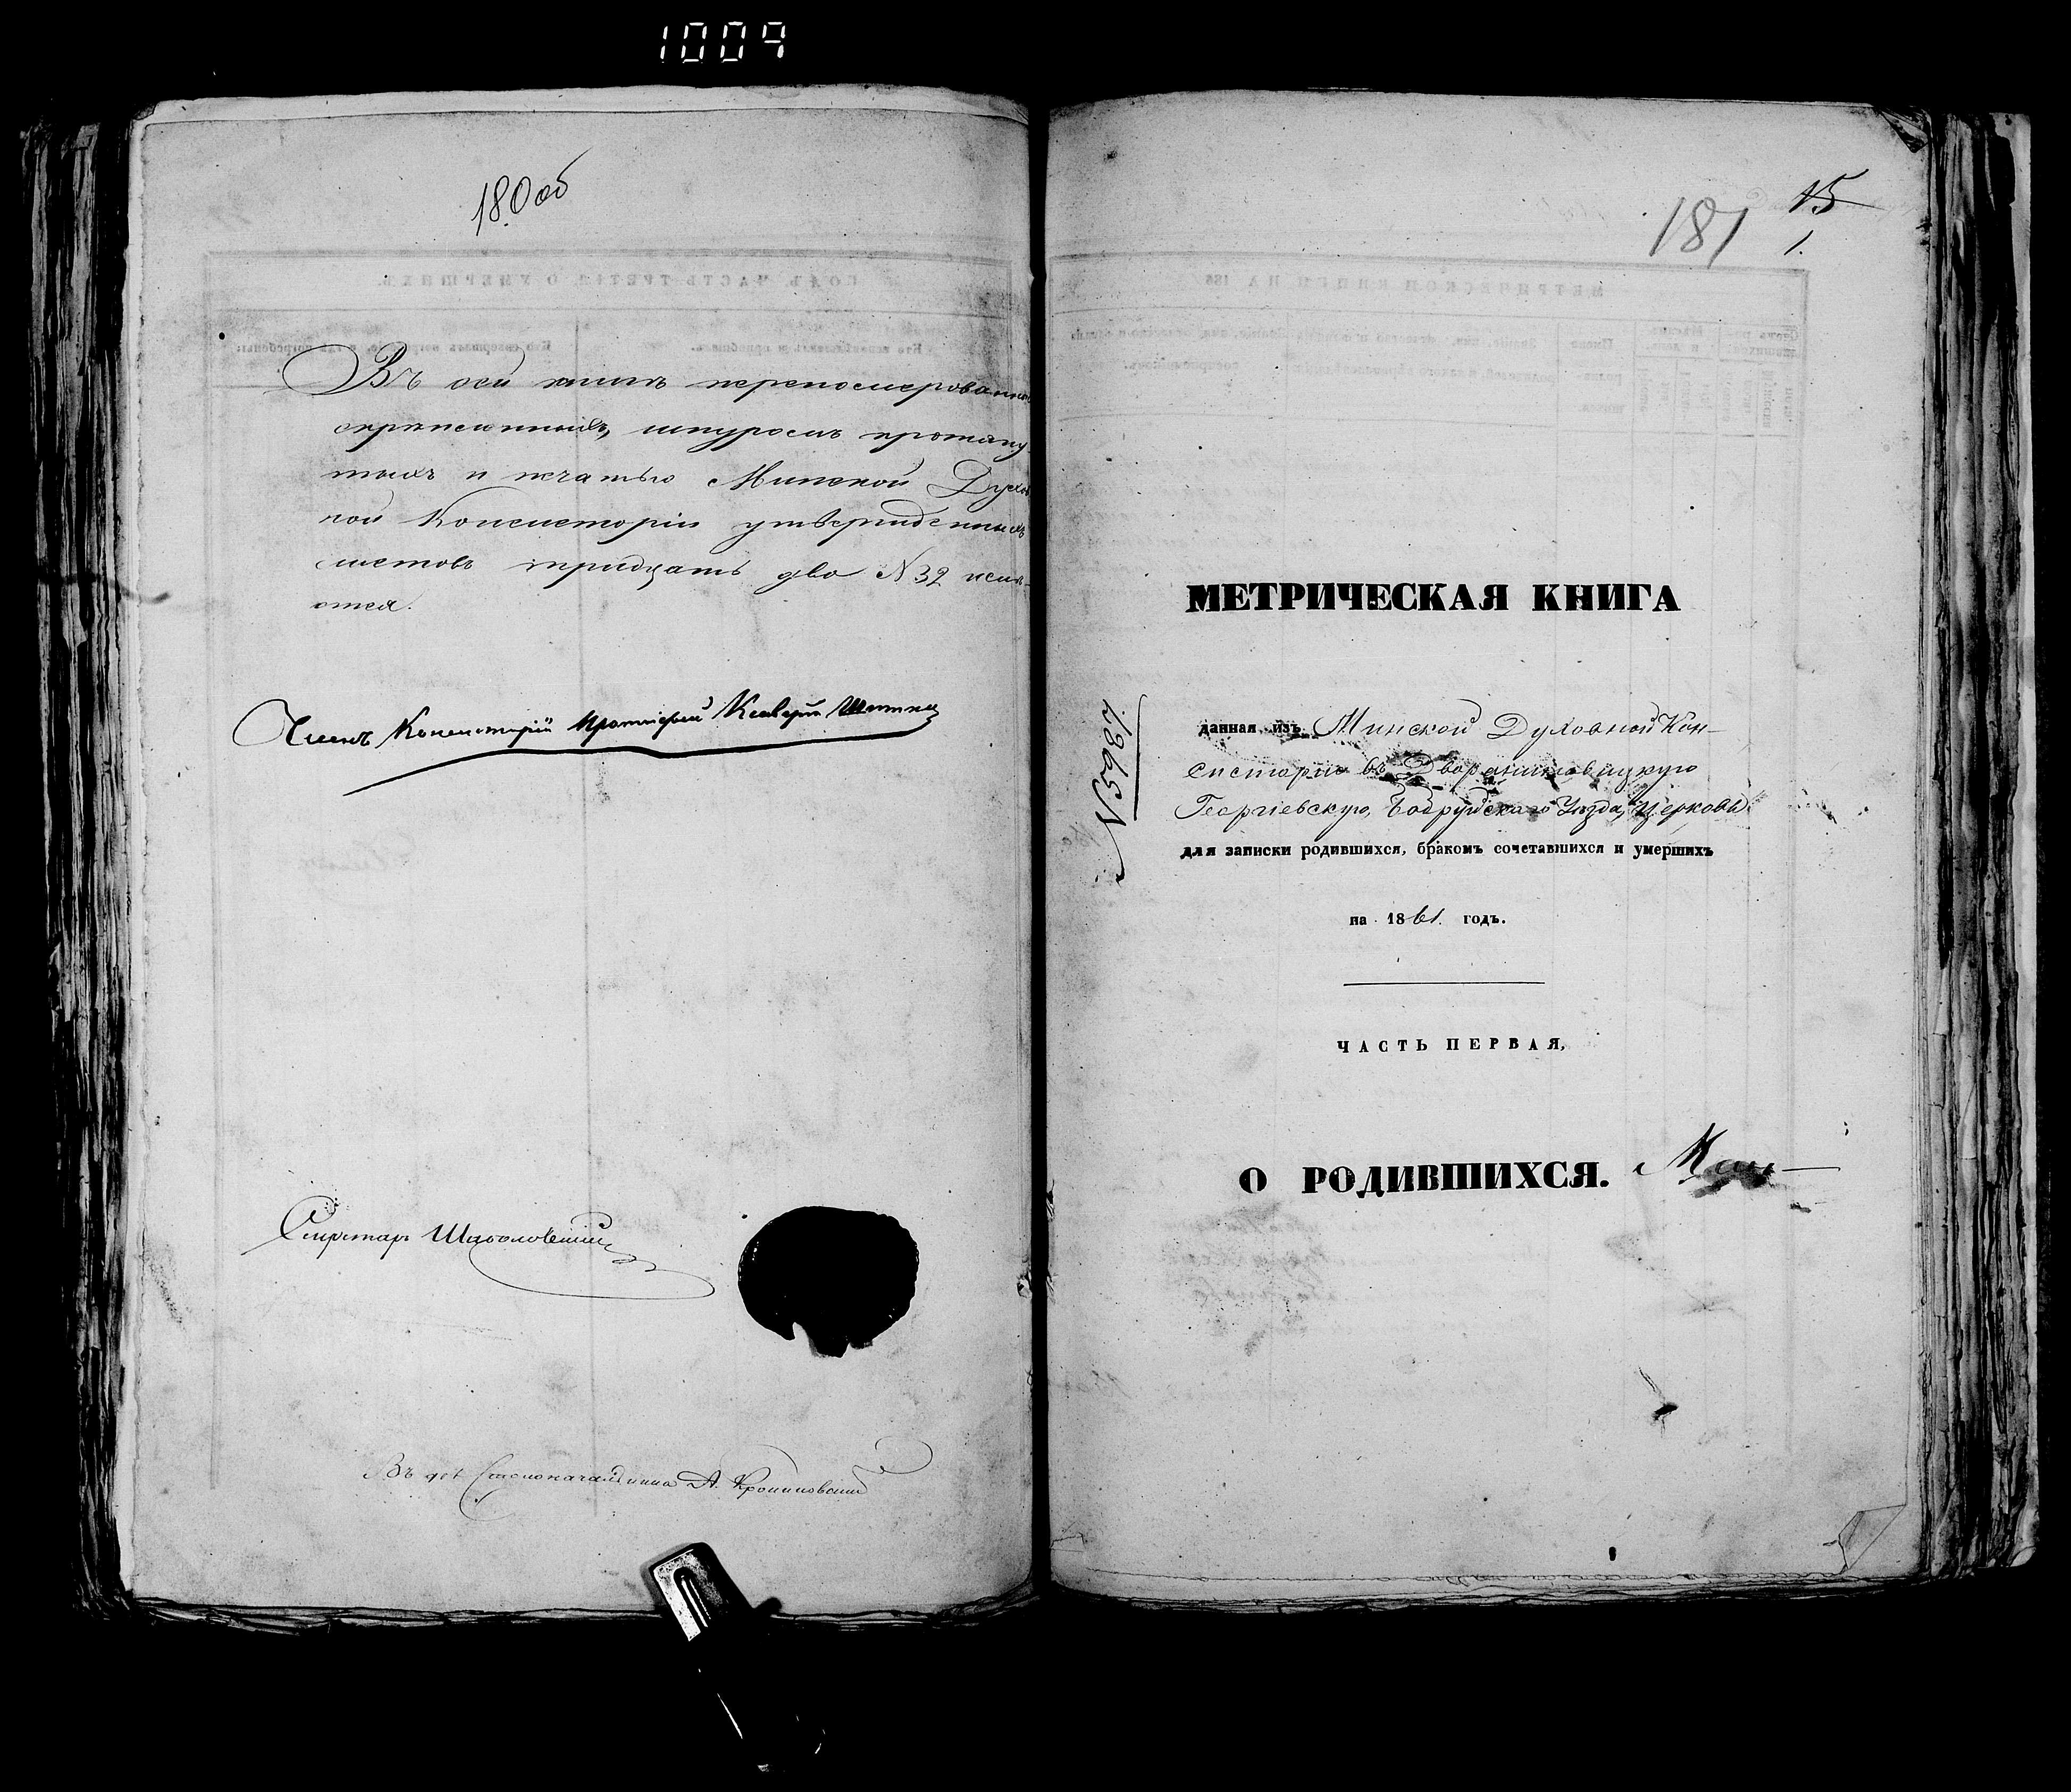 1009
180 об
Въ сей книгѣ перенумерованныхъ
скрѣпленныхъ, шнуромъ протяну
тыхъ и печатью Минской Духов
ной Консисторіи утвержденныхъ
листовъ тридцать два N 32 имѣ-
ются.
Членъ Консисторіи Протоіерей
Секретарь
Въ дол. Столоначальника А.
15
181
1.
МЕТРИЧЕСКАЯ КНИГА
N 5987.
данная изъ Минской Духовной Кон-
систоріи въ Дворяниновицкую
Георгіевскую, Бобруйскаго Уѣзда, церковь
для записки родившихся, бракомъ сочетавшихся и умершихъ
на 1861. годъ.
ЧАСТЬ ПЕРВАЯ,
О РОДИВШИХСЯ.